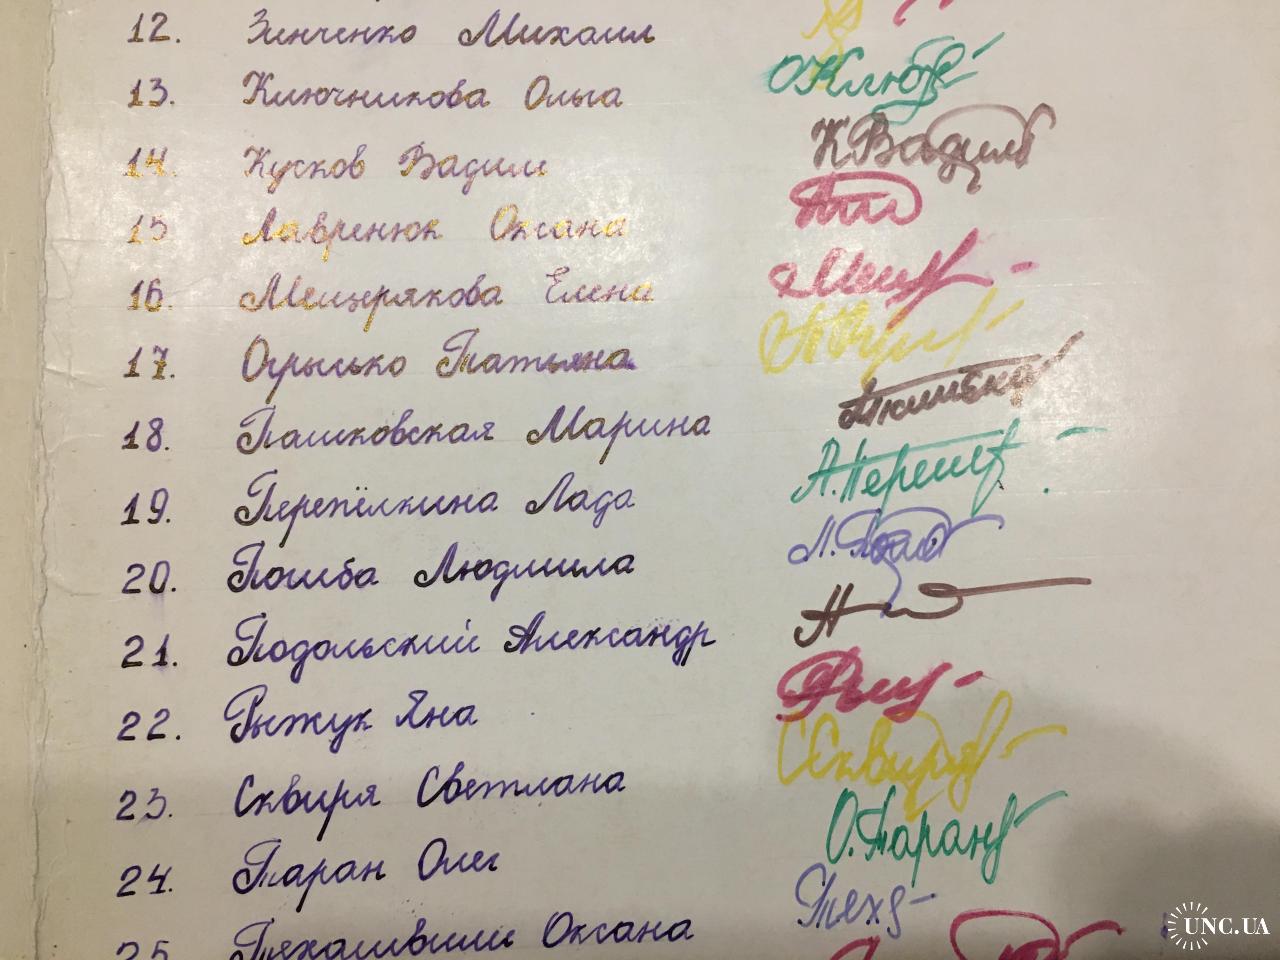 12. Зинченко Михаил
13. Ключникова Ольга ОКлюв
14. Кусков Вадим К Вадим
15 Лавренюк Оксана
16. Мещерякова Елена
17. Огрысько Татьяна
18. Пашковская Марина
19. Перепёлкина Лада
20. Пошба Людмила
21. Подольский Александр
22. Рыжук Яна
23. Сквиря Светлана ССквиря
24. Таран Олег О.Таран
25. Техашвили Оксана Тех
UNC.UA